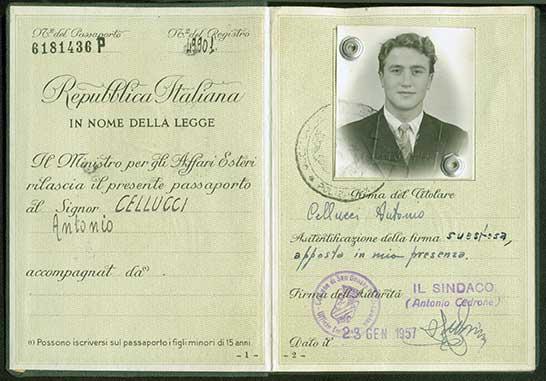 Nº del Passaporto
6181436 P
Nº del Registro
Repubblica Italiana
IN NOME DELLA LEGGE
Il Ministro per gli Affari Esteri
rilascia il presente passaporto
al Signor CELLUCCI
Antonio
accompagnat da (1)
(1) Possono iscriversi sul passaporto i figli minori di 15 anni.
- 1 -
Firma del Titolare
Cellucci Antonio
Autentificazione della firma suestesa,
apposta in mia presenza.
Firma dell'Autorità
IL SINDACO
(Antonio Cedrone)
Comune di San Donato
Dato il 23 GEN 1957
- 2 -